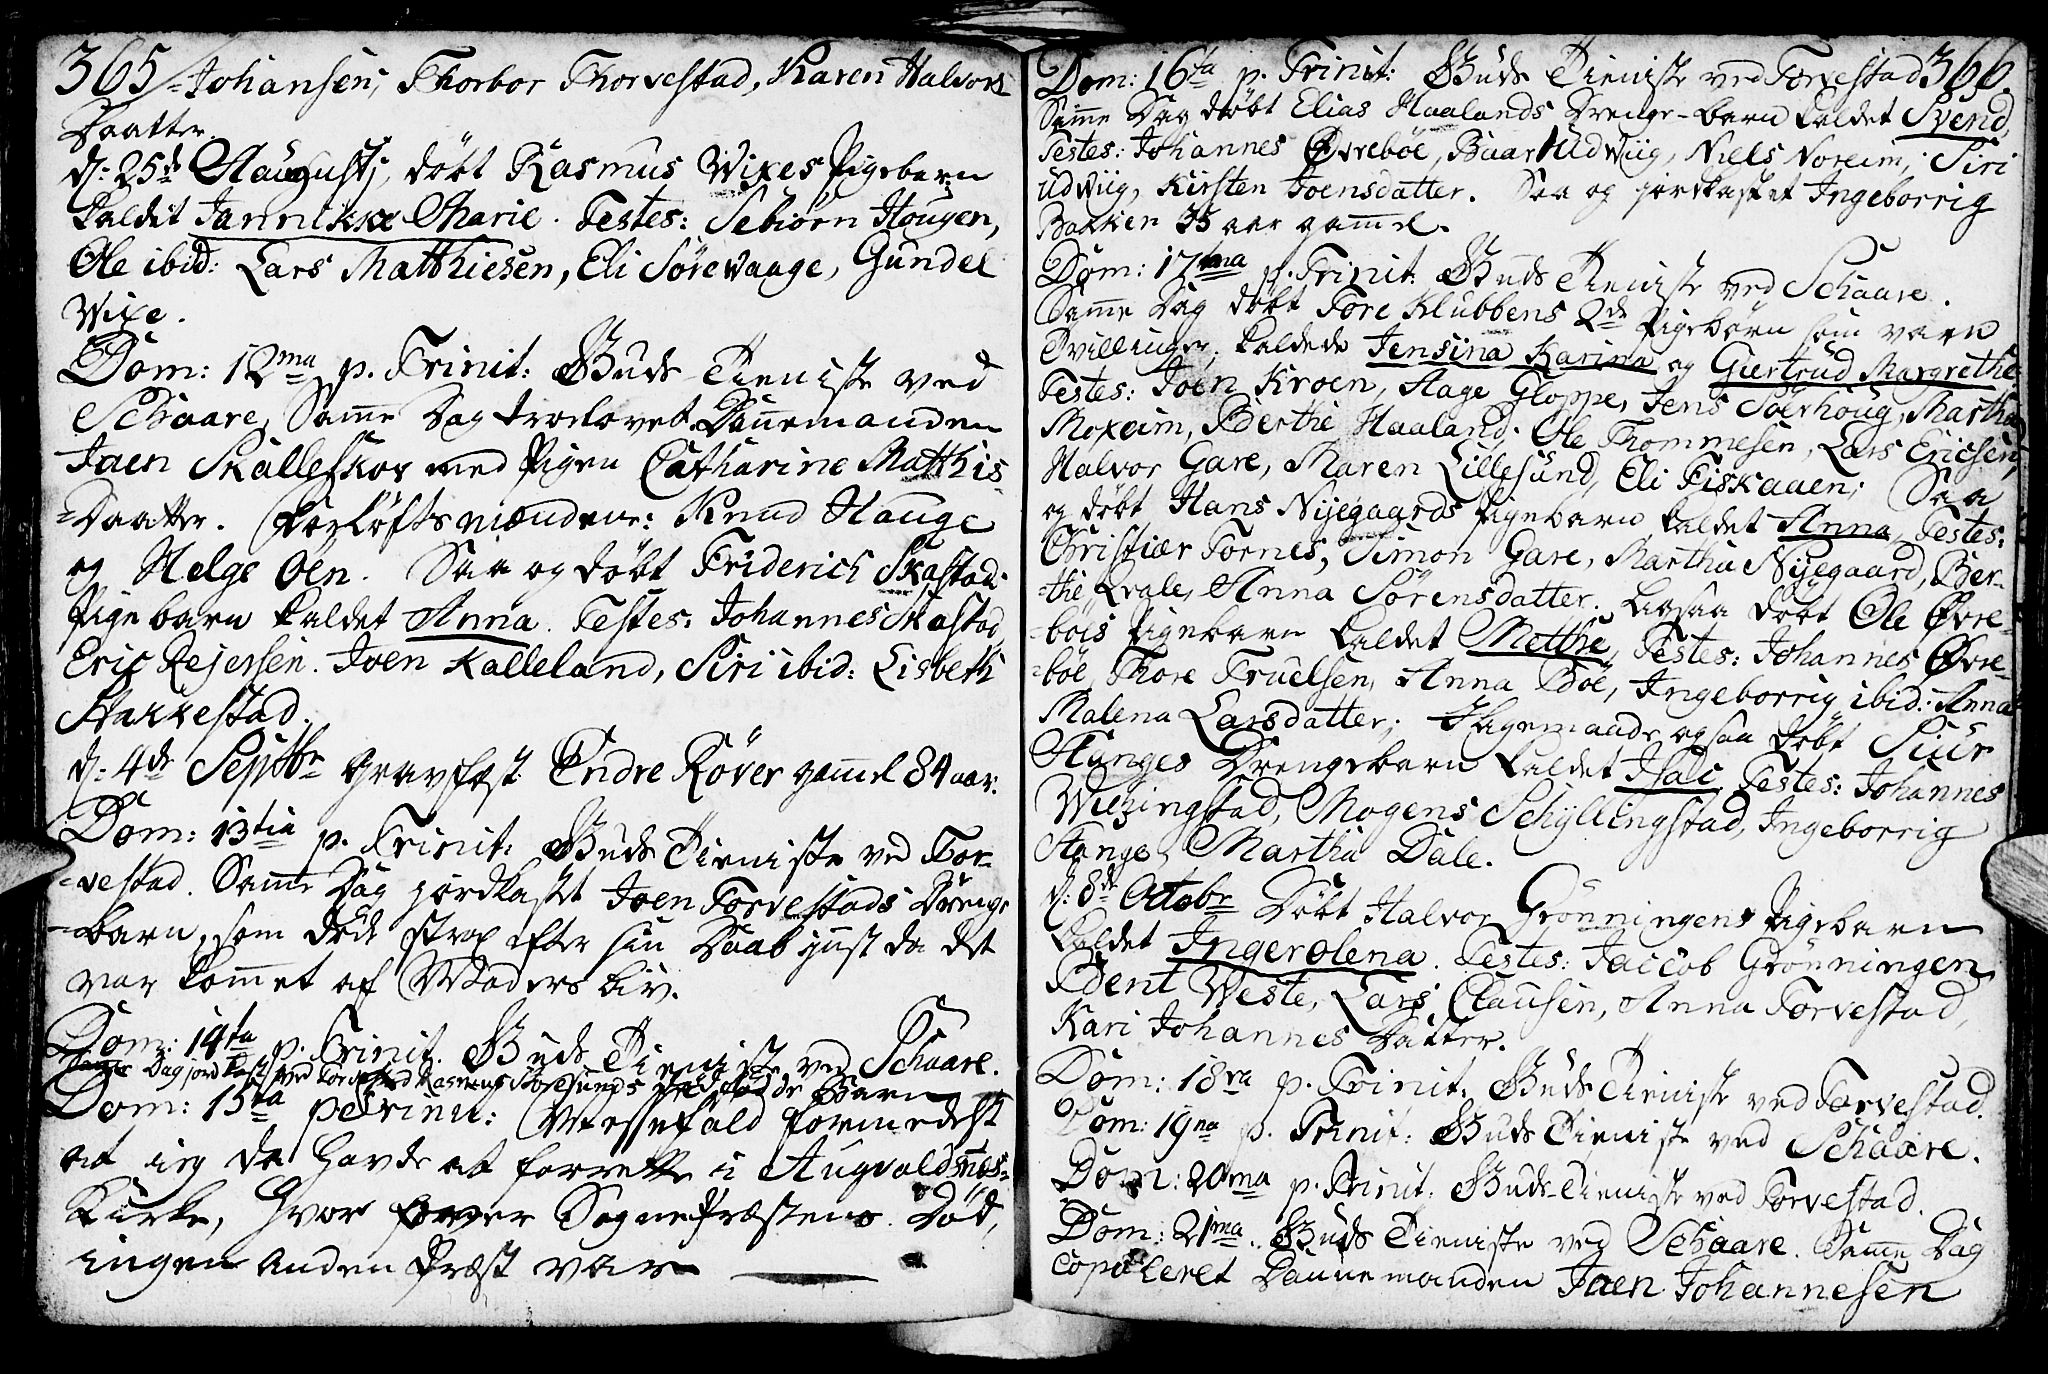 365 Johansen, Thorbor Thorvestad, Karen Halvors
Daatter.
d: 25de Augustj, döbt Rasmus Wixes Pigebarn
kaldet Jannikke Marie. Testes: Sebiörn Hougen,
Ole ibid: Lars Matthiesen, Eli Sörevaage, Gundel
Wixe.
Dom: 12ma p. Trinit: Guds Tieniste ved
Schaare, Samme Dag trolovet Dannemanden
Joen Skallesköy med Pigen Catharine Matthis
=Daatter. Forløftsmændene: Knud Hauge
og Helge Öen. Saa og döbt Friderich Skastad:
Pigebarn kaldet Anna. Testes: Johannes Skastad,
Eric Rejersen. Joen Kalleland, Siri ibid: Lisbeth
Stakkestad.
d: 4de Septbr gravfæst Endre Röver gamel 84 aar.
Dom: 13tia p. Trinit: Guds Tieniste ved Tor-
=vestad. Samme Dag jordkastet Joen Torvestads Drenge
=barn, som døde strax efter sin Daab just da det
var kommet af Moders Liv.
Dom: 14ta p. Trinit. Guds Tieniste ved Schaare.
Samme Dag jordkastet ved Torvestad Rasmus Storesunds barn
Dom: 15ta p Trinit: Messefald formedelst
at ieg da havde at forrette i Augvaldsnes-
Kirke, hvor Sognepræstens Död,
ingen anden Præst var

Dom: 16ta p. Trinit: Guds Tieniste ved Torvestad 366.
Samme Dag döbt Elias Haalands Drenge-barn kaldet Svend,
Testes: Johannes Övreböe, Baar Udviig, Niels Noreim, Siri
Udviig, Kirsten Joensdatter. Saa og jordkastet Ingeborrig
Bakken 35 aar gammel.
Dom: 17ma p. Trinit: Guds Tieniste ved Schaare.
Samme Dag döbt Tore Klubbens 2de Pigebörn som varn
Tvillinger, kaldede Jensina Karina og Giertrud Margrethe.
Testes: Joen Kroen, Aage Gloppe, Jens Sörhoug, Martha
Moxeim, Berthe Haaland. Ole Thommesen, Lars Ericsen,
Halvor Gare, Maren Lillesund, Eli Fiskaaen; Saa
og döbt Hans Nyegaards Pigebarn kaldet Anna, Testes:
Christiær Tornes, Simon Gare, Martha Nyegaard, Ber-
=the Qvale, Anna Sörensdatter. Ligesaa döbt Ole Övre-
böes Pigebarn kaldet Metthe, Testes: Johannes Övre-
=böe, Thore Truelsen, Anna Böe, Ingeborrig ibid: Anna
Malena Larsdatter; Ligemaade ogsaa döbt Siur
Stanges Drengebarn kaldet Isac, Testes: Johannes
Wikingstad, Mogens Schyllingstad, Ingeborrig
Stange, Martha Dale.
d: 8de Octobr Döbt Halvor Grönningens Pigebarn
kaldet Ingerolena. Testes: Jaccob Grönningen,
Edent Weste, Lars Clausen, Anna Torvestad,
Kari Johannes Datter.
Dom: 18va p. Trinit: Guds Tieniste ved Torvestad.
Dom: 19na p. Trinit: Guds Tieniste ved Schaare.
Dom: 20ma p. Trinit: Guds-Tieniste ved Torvestad.
Dom: 21ma. Guds Tieniste ved Schaare. Samme Dag
copuleret Dannemanden Joen Johannesen